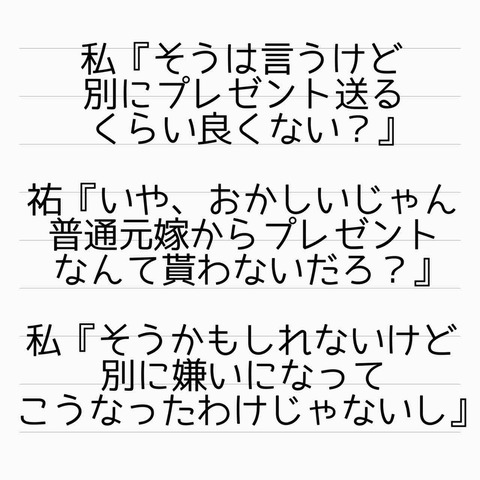 私『そうは言うけど
別にプレゼント送る
くらい良くない？』
祐『いや、おかしいじゃん
普通元嫁からプレゼント
なんて貰わないだろ？』
私『そうかもしれないけど
別に嫌いになって
こうなったわけじゃないし』